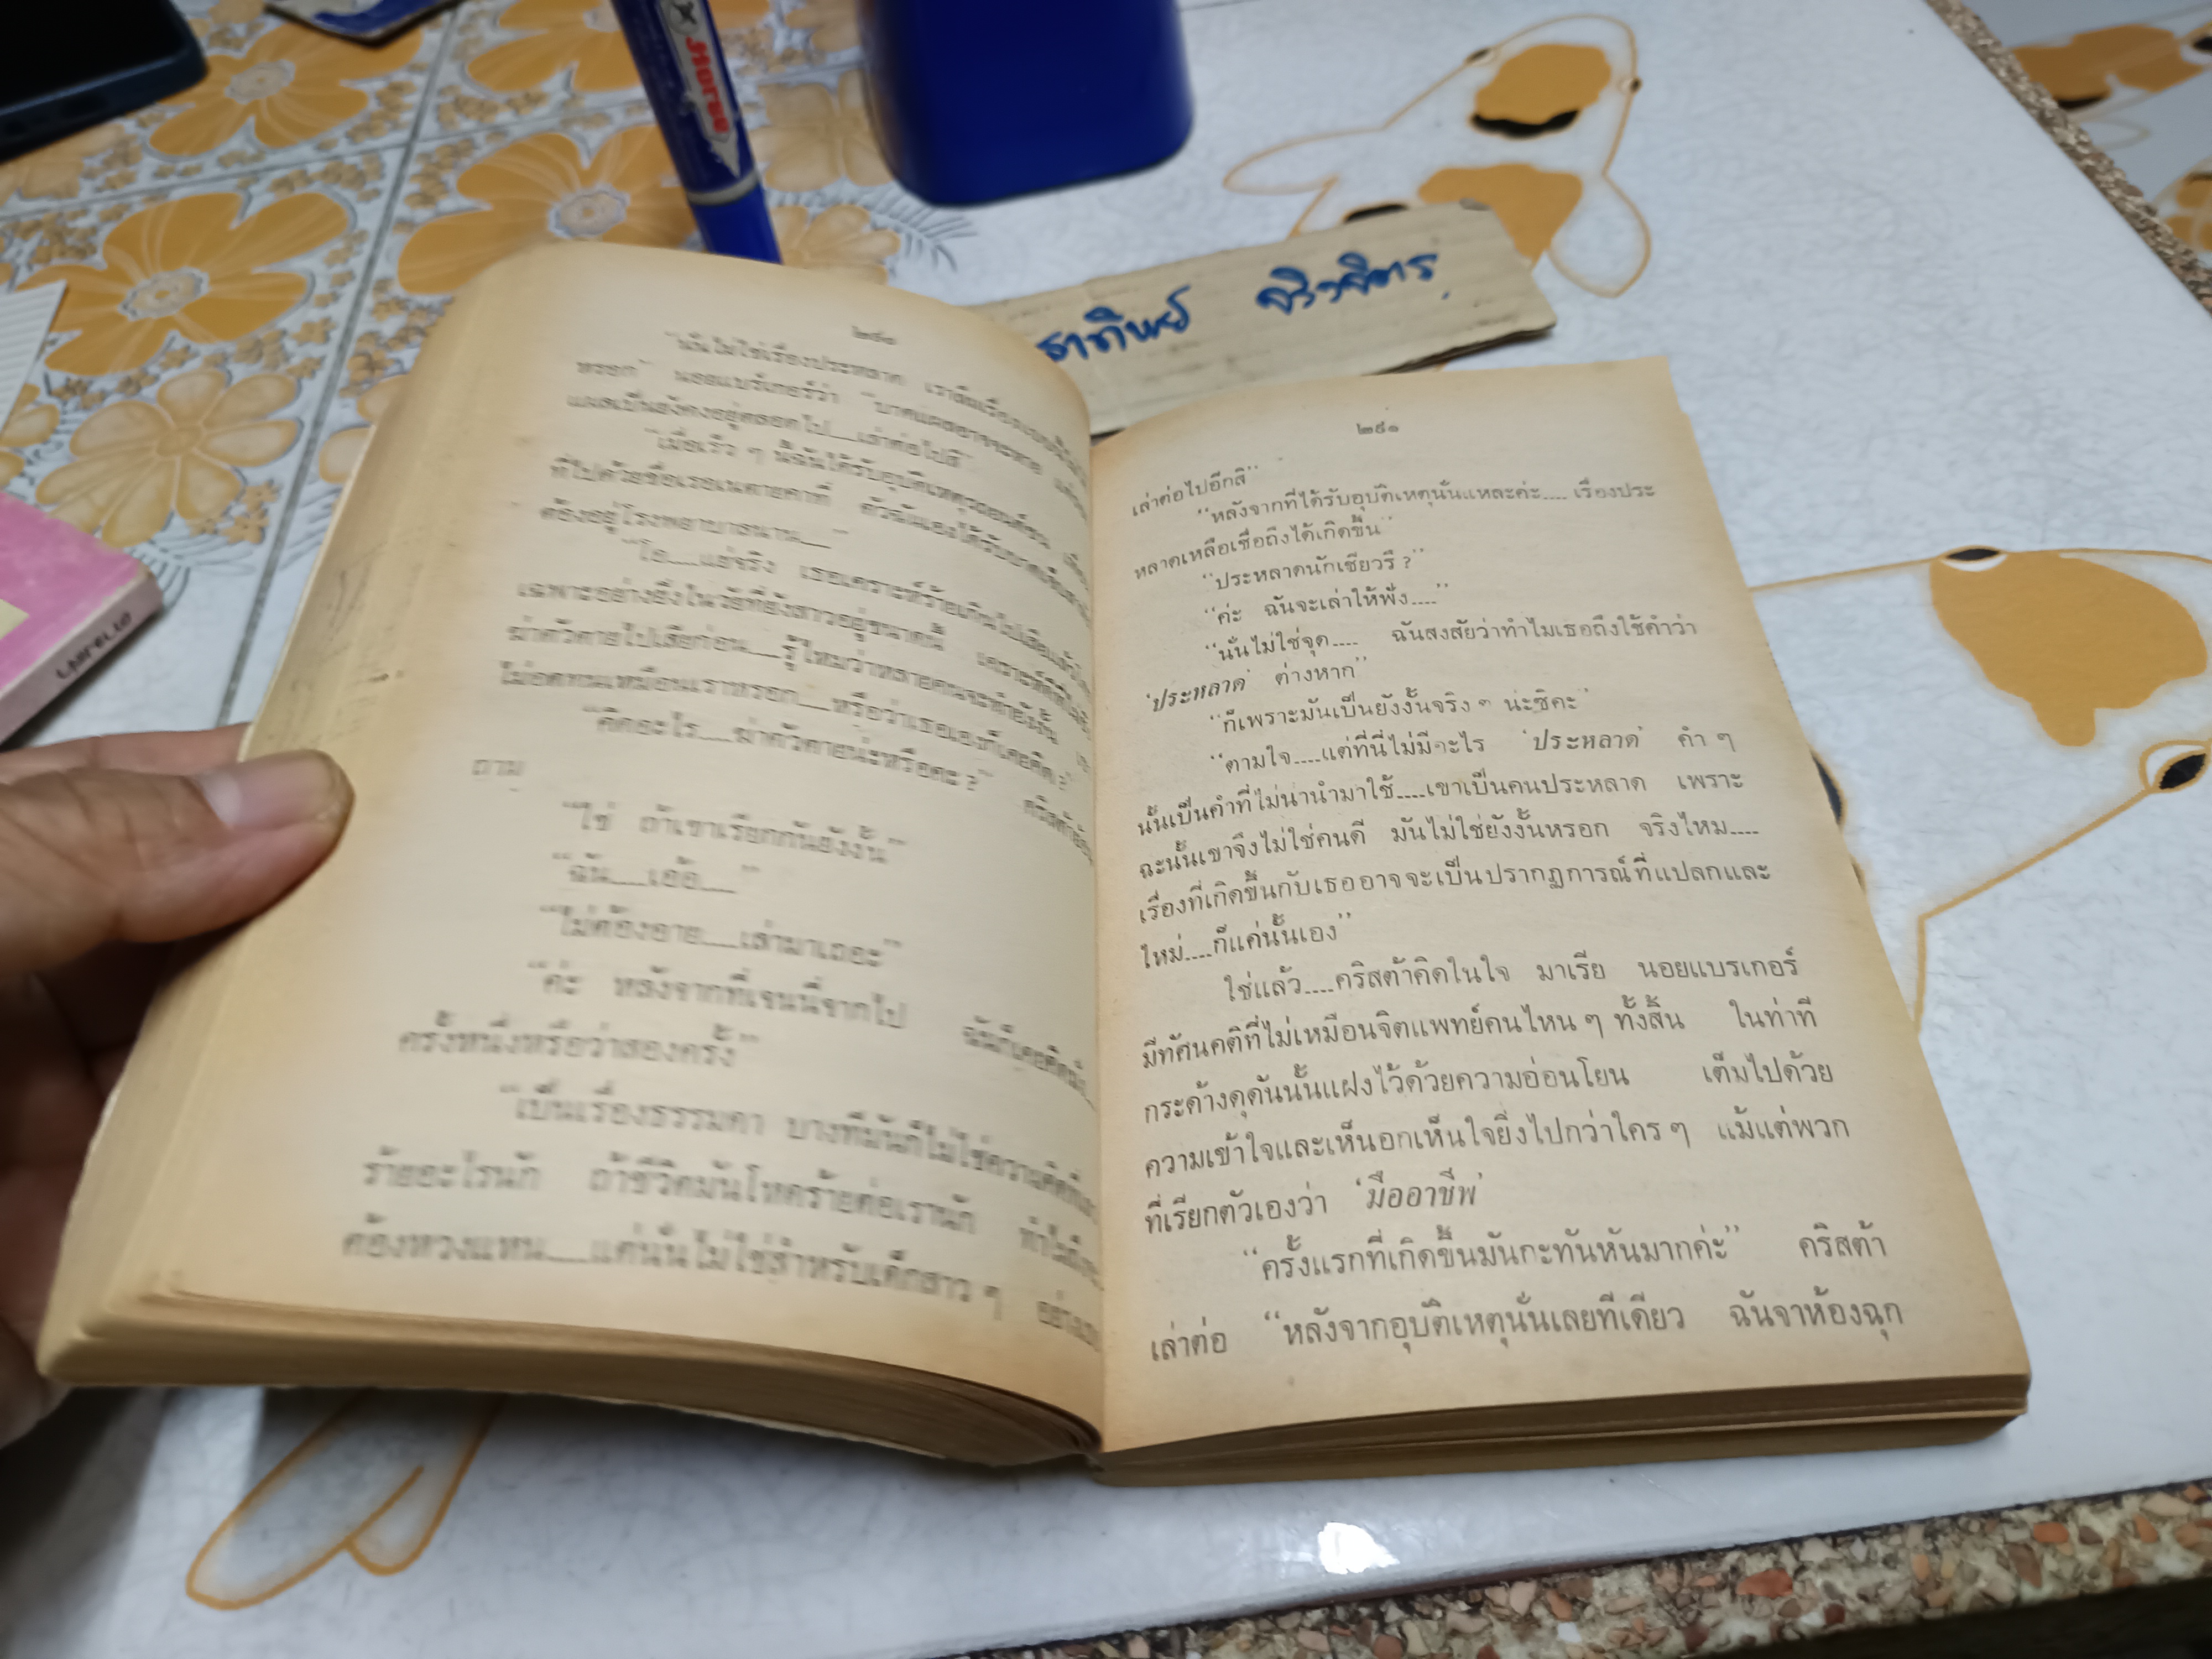 Horse
"นั่นไม่ใช่เรื่องประหลาด
หรอก" นอยแบรเกอร์ว่า
แผลเป็นยังคงอยู่ตลอดไป....เล่าต่อไปสิ"
"เมื่อเร็ว ๆ นี้ฉันได้รับอุบัติเหตุรถยนต์ชน
ต้องอยู่โรงพยาบาลนาน...."
"โอ....แย่จริง เธอเคราะห์ร้ายเกินไปเสียแล้ว
เฉพาะอย่างยิ่งในวัยที่ยังสาวอยู่ขนาดนี้
ฆ่าตัวตายไปเสียก่อน....รู้ไหมว่าหลายคนจะทำยังงั้น
ไม่อดทนเหมือนเราหรอก....หรือว่าเธอเองก็เคยคิด ?"
"คิดอะไร....ฆ่าตัวตายน่ะหรือคะ ?" คริสต้าย้อน
ถาม
"ใช่ ถ้าเขาเรียกกันยังงั้น"
"ฉัน....เอ้อ...."
"ไม่ต้องอาย....เล่ามาเถอะ"
"ค่ะ หลังจากที่เจนนี่จากไป ฉันก็เคยคิด
ครั้งหนึ่งหรือว่าสองครั้ง"
"เป็นเรื่องธรรมดา บางทีมันก็ไม่ใช่ความคิดที่
ร้ายอะไรนัก ถ้าชีวิตมันโหดร้ายต่อเรานัก
ต้องหวงแหน....แต่นั่นไม่ใช่สำหรับเด็กสาว ๆ
๒๙๑
เล่าต่อไปอีกสิ"
"หลังจากที่ได้รับอุบัติเหตุนั่นแหละค่ะ.... เรื่องประ
หลาดเหลือเชื่อถึงได้เกิดขึ้น"
"ประหลาดนักเชียวรึ ?"
"ค่ะ ฉันจะเล่าให้ฟัง...."
"นั่นไม่ใช่จุด.... ฉันสงสัยว่าทำไมเธอถึงใช้คำว่า
'ประหลาด' ต่างหาก"
"ก็เพราะมันเป็นยังงั้นจริง ๆ น่ะซิคะ"
"ตามใจ....แต่ที่นี่ไม่มีอะไร 'ประหลาด' คำ ๆ
นั้นเป็นคำที่ไม่น่านำมาใช้....เขาเป็นคนประหลาด เพราะ
ฉะนั้นเขาจึงไม่ใช่คนดี มันไม่ใช่ยังงั้นหรอก จริงไหม....
เรื่องที่เกิดขึ้นกับเธออาจจะเป็นปรากฏการณ์ที่แปลกและ
ใหม่....ก็แค่นั้นเอง"
ใช่แล้ว....คริสต้าคิดในใจ มาเรีย นอยแบรเกอร์
มีทัศนคติที่ไม่เหมือนจิตแพทย์คนไหน ๆ ทั้งสิ้น ในท่าที
กระด้างดุดันนั้นแฝงไว้ด้วยความอ่อนโยน เต็มไปด้วย
ความเข้าใจและเห็นอกเห็นใจยิ่งไปกว่าใคร ๆ แม้แต่พวก
ที่เรียกตัวเองว่า 'มืออาชีพ'
"ครั้งแรกที่เกิดขึ้นมันกะทันหันมากค่ะ" คริสต้า
เล่าต่อ "หลังจากอุบัติเหตุนั่นเลยทีเดียว ฉันจาห้องฉุก